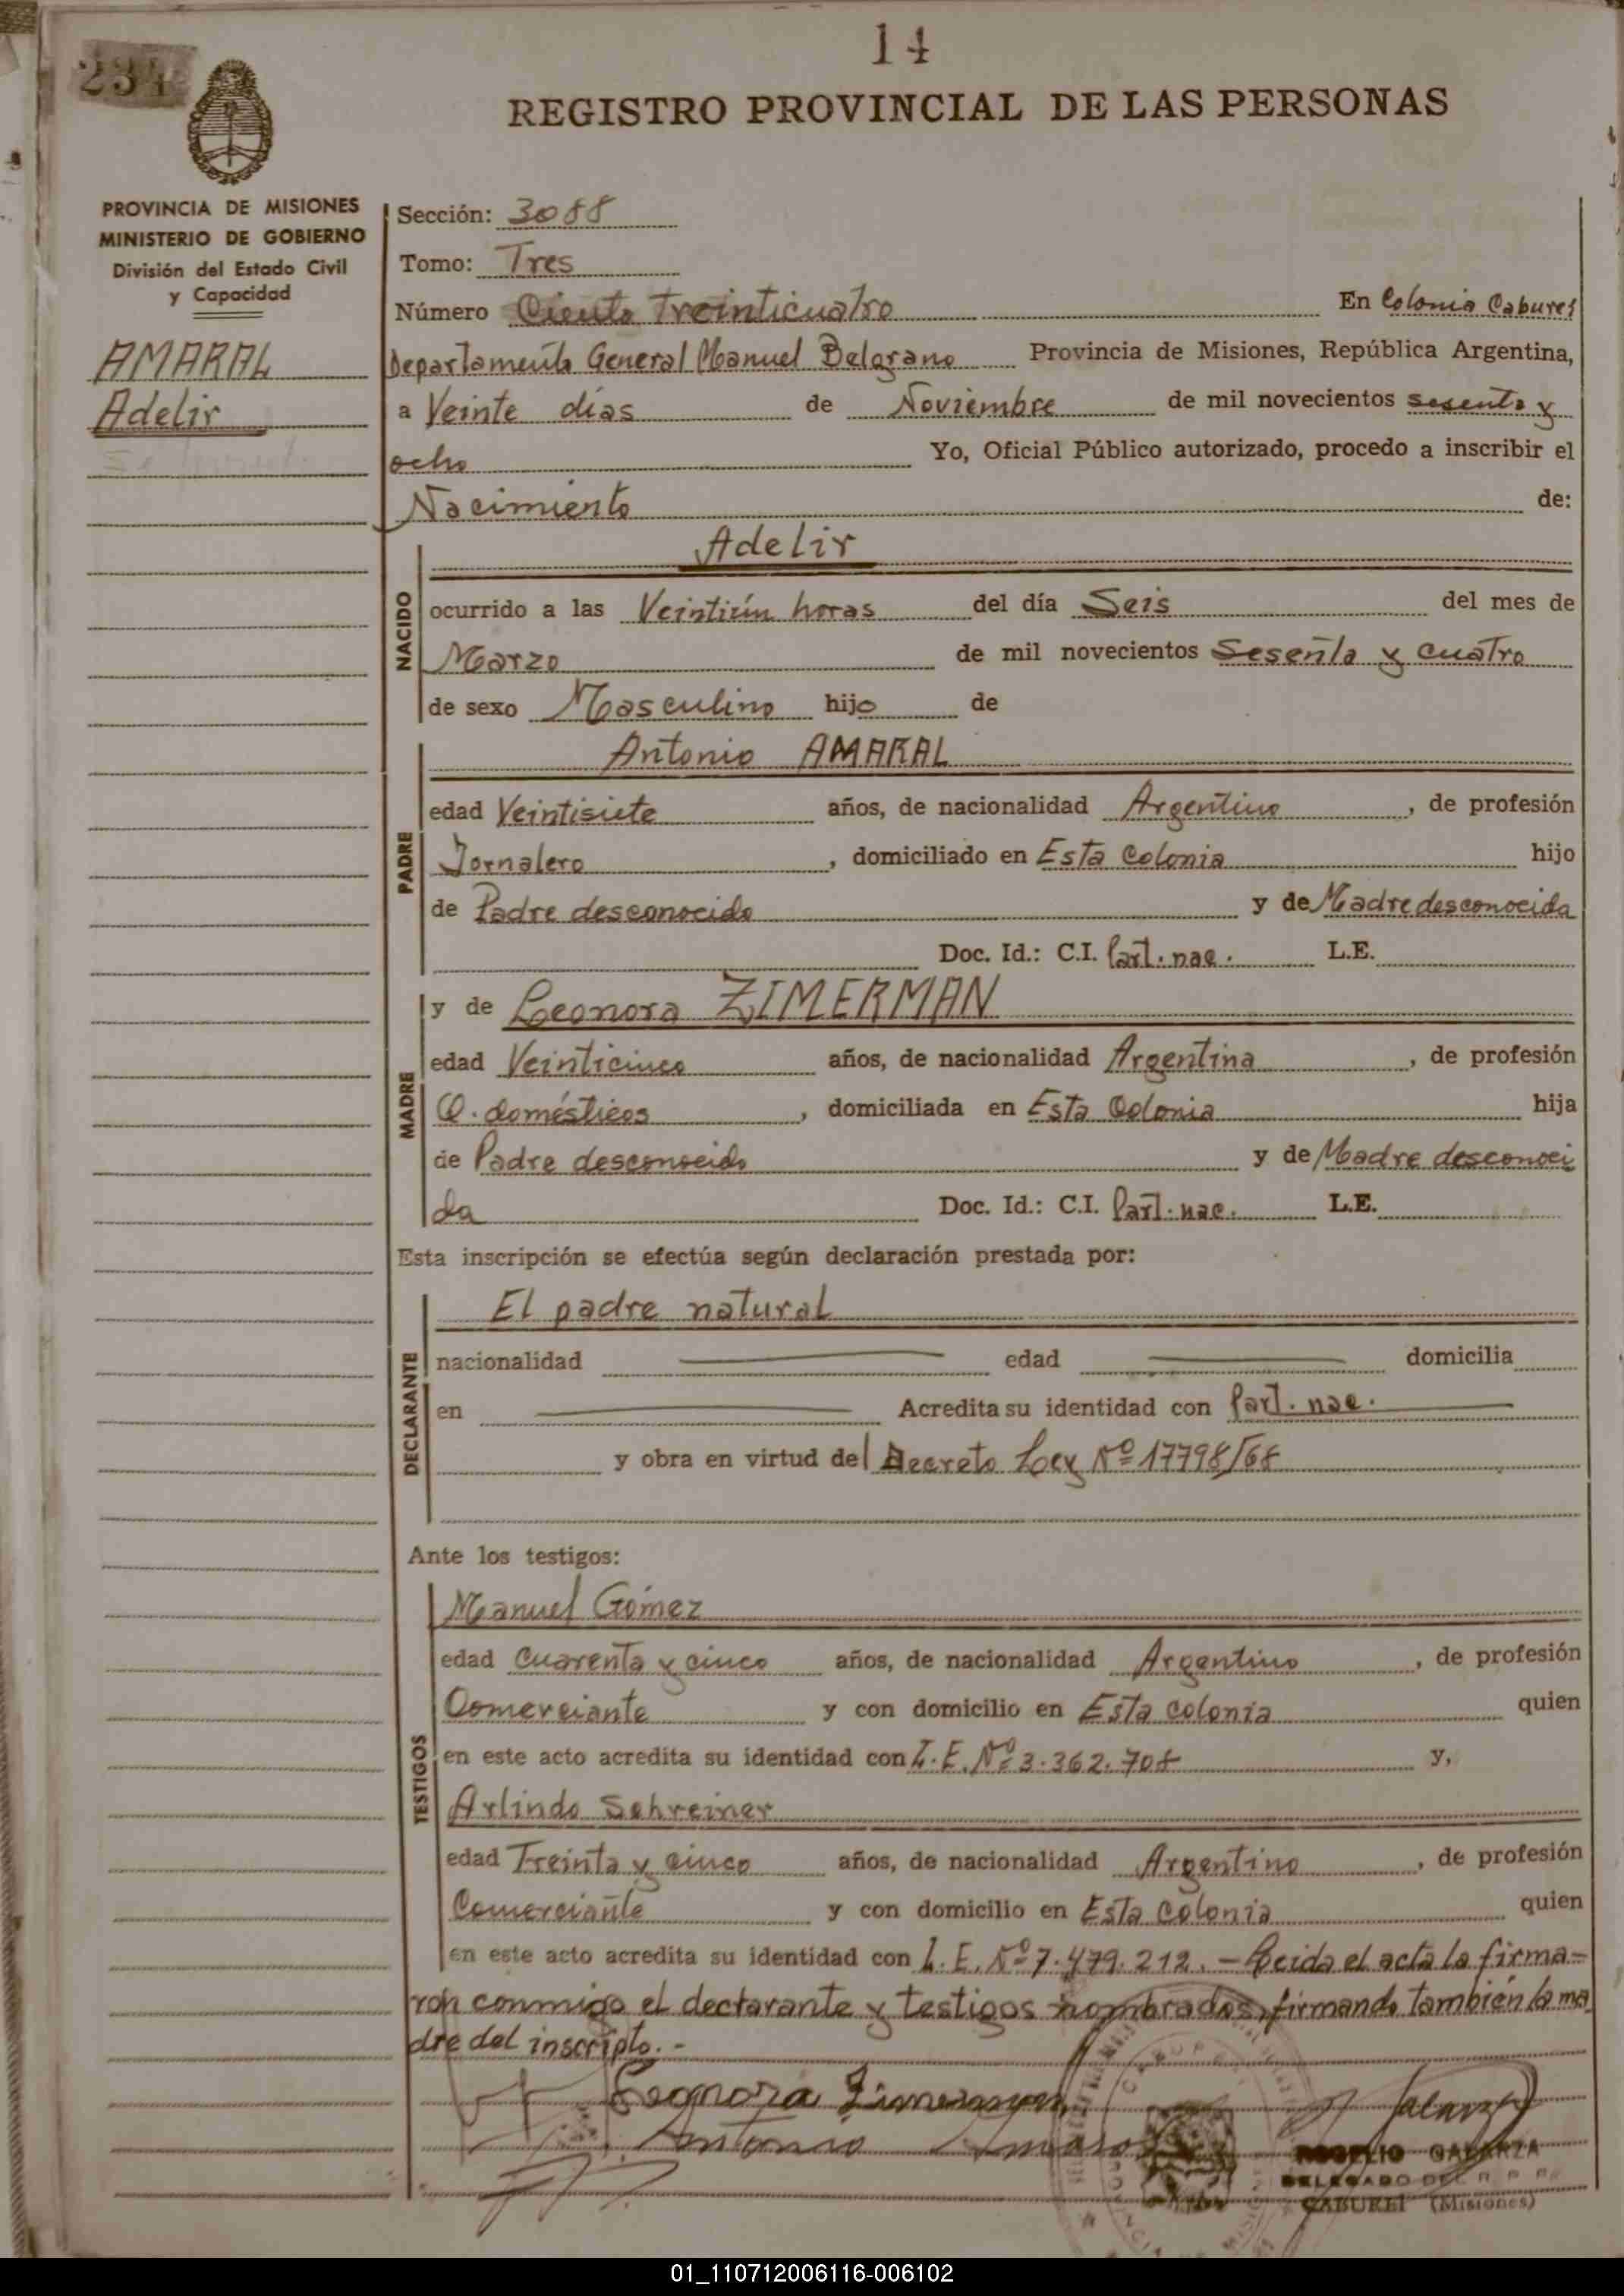 14
234
REGISTRO PROVINCIAL DE LAS PERSONAS
PROVINCIA DE MISIONES
MINISTERIO DE GOBIERNO
División del Estado Civil
y Capacidad
AMARAL
Adelir
Sección: 3088
Tomo: Tres
Número Ciento Treinticuatro En Colonia Cabureí
Departamento General Manuel Belgrano Provincia de Misiones, República Argentina,
a Veinte días de Noviembre de mil novecientos sesenta y
ocho Yo, Oficial Público autorizado, procedo a inscribir el
Nacimiento de:
NACIDO
Adelir
ocurrido a las Veintiún horas del día Seis del mes de
Marzo de mil novecientos Sesenta y cuatro
de sexo Masculino hijo de
PADRE
Antonio AMARAL
edad Veintisiete años, de nacionalidad Argentino, de profesión
Jornalero, domiciliado en Esta Colonia hijo
de Padre desconocido y de Madre desconocida
Doc. Id.: C.I. Part. nac. L.E.
MADRE
y de Leonora ZIMERMAN
edad Veinticinco años, de nacionalidad Argentina, de profesión
Q. domésticos, domiciliada en Esta Colonia hija
de Padre desconocido y de Madre desconoci
da Doc. Id.: C.I. Part. nac. L.E.
Esta inscripción se efectúa según declaración prestada por:
DECLARANTE
El padre natural
nacionalidad — edad — domicilia
en — Acredita su identidad con Part. nac.
y obra en virtud del Decreto Ley Nº 17798/68
Ante los testigos:
TESTIGOS
Manuel Gómez
edad Cuarenta y cinco años, de nacionalidad Argentino, de profesión
Comerciante y con domicilio en Esta colonia quien
en este acto acredita su identidad con L.E. Nº 3.362.708 y,
Arlindo Schreiner
edad Treinta y cinco años, de nacionalidad Argentino, de profesión
Comerciante y con domicilio en Esta Colonia quien
en este acto acredita su identidad con L.E. Nº 7.479.212. - Leida el acta la firma=
ron conmigo el declarante y testigos nombrados, firmando también la ma
dre del inscripto.-
Leonora Zimerman
Antonio Amaral
ROGELIO GALARZA
DELEGADO DEL R. P. P.
CABUREÍ (Misiones)
01_110712006116-006102